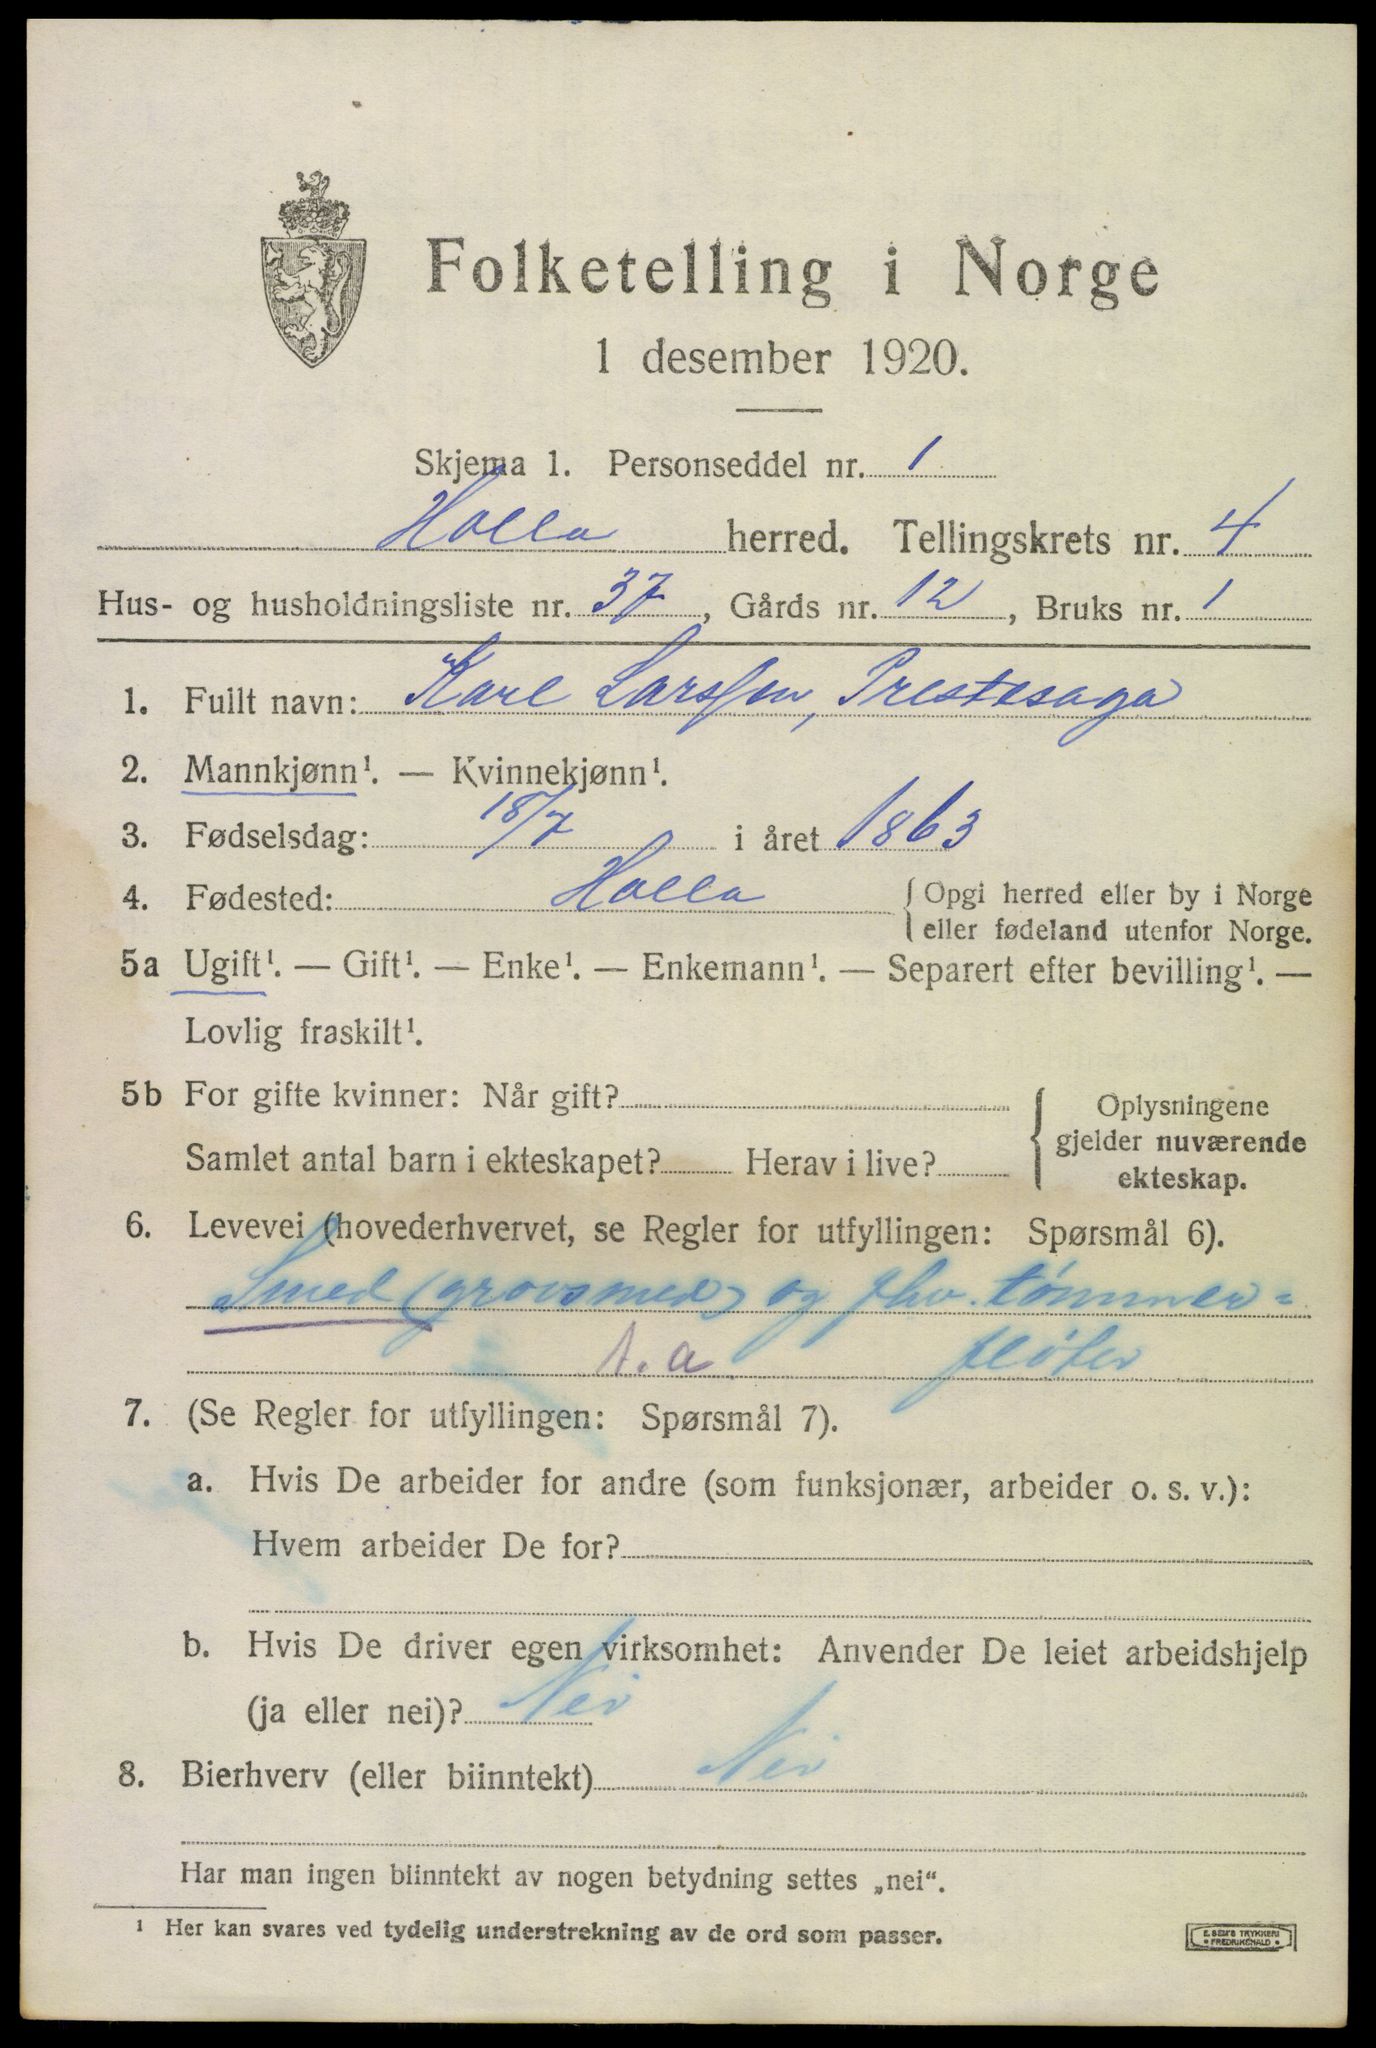 Folketelling i Norge
1 desember 1920.
Skjema 1. Personseddel nr. 1
Holla herred. Tellingskrets nr. 4
Hus- og husholdningsliste nr. 37, Gårds nr. 12, Bruks nr. 1
1. Fullt navn: Karl Larssen, Prestesaga
2. Mannkjønn¹. — Kvinnekjønn¹.
3. Fødselsdag: 18/7 i året 1863
4. Fødested: Holla { Opgi herred eller by i Norge
eller fødeland utenfor Norge.
5a Ugift¹. — Gift¹. — Enke¹. — Enkemann¹. — Separert efter bevilling¹. —
Lovlig fraskilt¹.
5b For gifte kvinner: Når gift?
Samlet antal barn i ekteskapet? Herav i live?
{ Oplysningene
gjelder nuværende
ekteskap.
6. Levevei (hovederhvervet, se Regler for utfyllingen: Spørsmål 6).
Smed (grovsmed) og fhv. tømmer=
t.a fløter
7. (Se Regler for utfyllingen: Spørsmål 7).
a. Hvis De arbeider for andre (som funksjonær, arbeider o. s. v.):
Hvem arbeider De for?
b. Hvis De driver egen virksomhet: Anvender De leiet arbeidshjelp
(ja eller nei)? Nei
8. Bierhverv (eller biinntekt) Nei
Har man ingen biinntekt av nogen betydning settes „nei“.
¹ Her kan svares ved tydelig understrekning av de ord som passer.
E. SEM'S TRYKKERI
• FREDRIKSHALD •